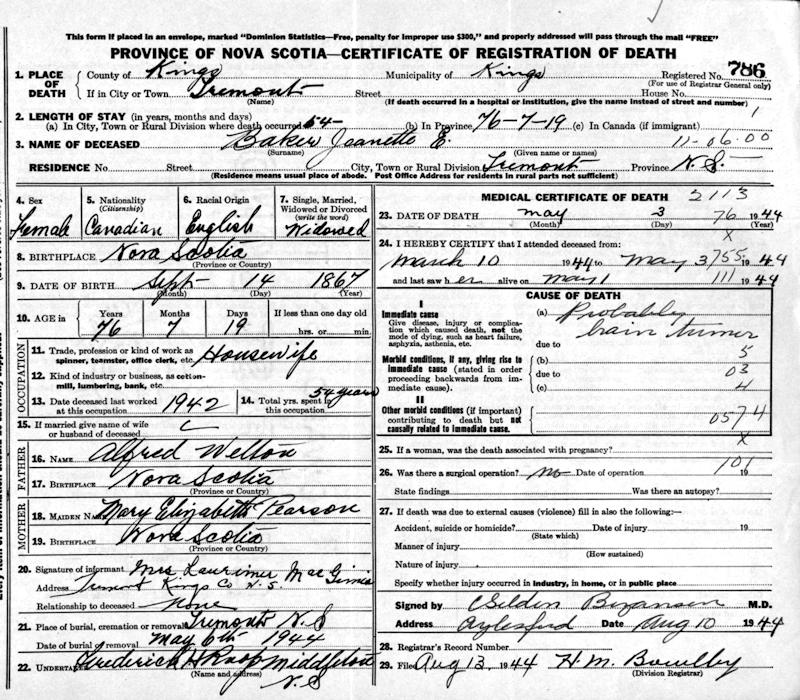 This form if placed in an envelope, marked "Dominion Statistics—Free, penalty for improper use $300," and properly addressed will pass through the mail "FREE"
PROVINCE OF NOVA SCOTIA—CERTIFICATE OF REGISTRATION OF DEATH
1. PLACE OF DEATH { County of Kings Municipality of Kings Registered No. 786
(For use of Registrar General only)
If in City or Town Tremont Street House No.
(Name) (If death occurred in a hospital or institution, give the name instead of street and number)
2. LENGTH OF STAY (in years, months and days)
(a) In City, Town or Rural Division where death occurred 54 (b) In Province 76-7-19 (c) In Canada (if immigrant) 1
3. NAME OF DECEASED Baker Jeanette E. 11-06.00
(Surname) (Given name or names)
RESIDENCE No. Street City, Town or Rural Division Tremont Province N.S.
(Residence means usual place of abode. Post Office Address for residents in rural parts not sufficient)
4. Sex
Female
5. Nationality
(Citizenship)
Canadian
6. Racial Origin
English
7. Single, Married, Widowed or Divorced
(write the word)
Widowed
8. BIRTHPLACE Nova Scotia
(Province or Country)
9. DATE OF BIRTH Sept 14 1867
(Month) (Day) (Year)
10. AGE in Years Months Days If less than one day old
76 7 19 hrs. or min.
OCCUPATION
11. Trade, profession or kind of work as spinner, teamster, office clerk, etc. Housewife
12. Kind of industry or business, as cotton-mill, lumbering, bank, etc.
13. Date deceased last worked at this occupation 1942
14. Total yrs. spent in this occupation 54 years
15. If married give name of wife or husband of deceased
FATHER
16. NAME Alfred Welton
17. BIRTHPLACE Nova Scotia
(Province or Country)
MOTHER
18. MAIDEN NAME Mary Elizabeth Pearson
19. BIRTHPLACE Nova Scotia
(Province or Country)
20. Signature of informant Mrs
Address Tremont Kings Co N.S.
Relationship to deceased None
21. Place of burial, cremation or removal Tremont N.S
Date of burial or removal May 6th 1944
22. UNDERTAKER Frederick H Roop Middleton
(Name and address) N.S
MEDICAL CERTIFICATE OF DEATH 2113
23. DATE OF DEATH May 3 76 1944
(Month) (Day) (Year)
24. I HEREBY CERTIFY that I attended deceased from: X
March 10 1944 to May 3 755 1944
and last saw her alive on May 1 111 1944
CAUSE OF DEATH
I
Immediate cause
Give disease, injury or complication which caused death, not the mode of dying, such as heart failure, asphyxia, asthenia, etc.
(a) Probably
brain tumor
due to 5
Morbid conditions, if any, giving rise to immediate cause (stated in order proceeding backwards from immediate cause).
(b)
due to 03
(c) 4
II
Other morbid conditions (if important) contributing to death but not causally related to immediate cause.
0574
25. If a woman, was the death associated with pregnancy? X
26. Was there a surgical operation? no Date of operation 101 19
State findings Was there an autopsy?
27. If death was due to external causes (violence) fill in also the following:—
Accident, suicide or homicide? Date of injury 19
(State which)
Manner of injury
(How sustained)
Nature of injury
Specify whether injury occurred in industry, in home, or in public place
Signed by M.D.
Address Aylesford Date Aug 10 1944
28. Registrar's Record Number
29. Filed Aug 13 1944 H.M. Bowlby
(Division Registrar)